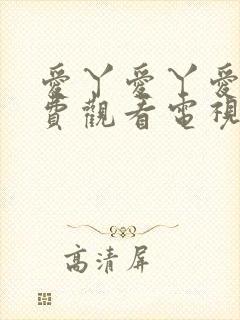 愛丫愛丫愛
費觀看電視
高清屏